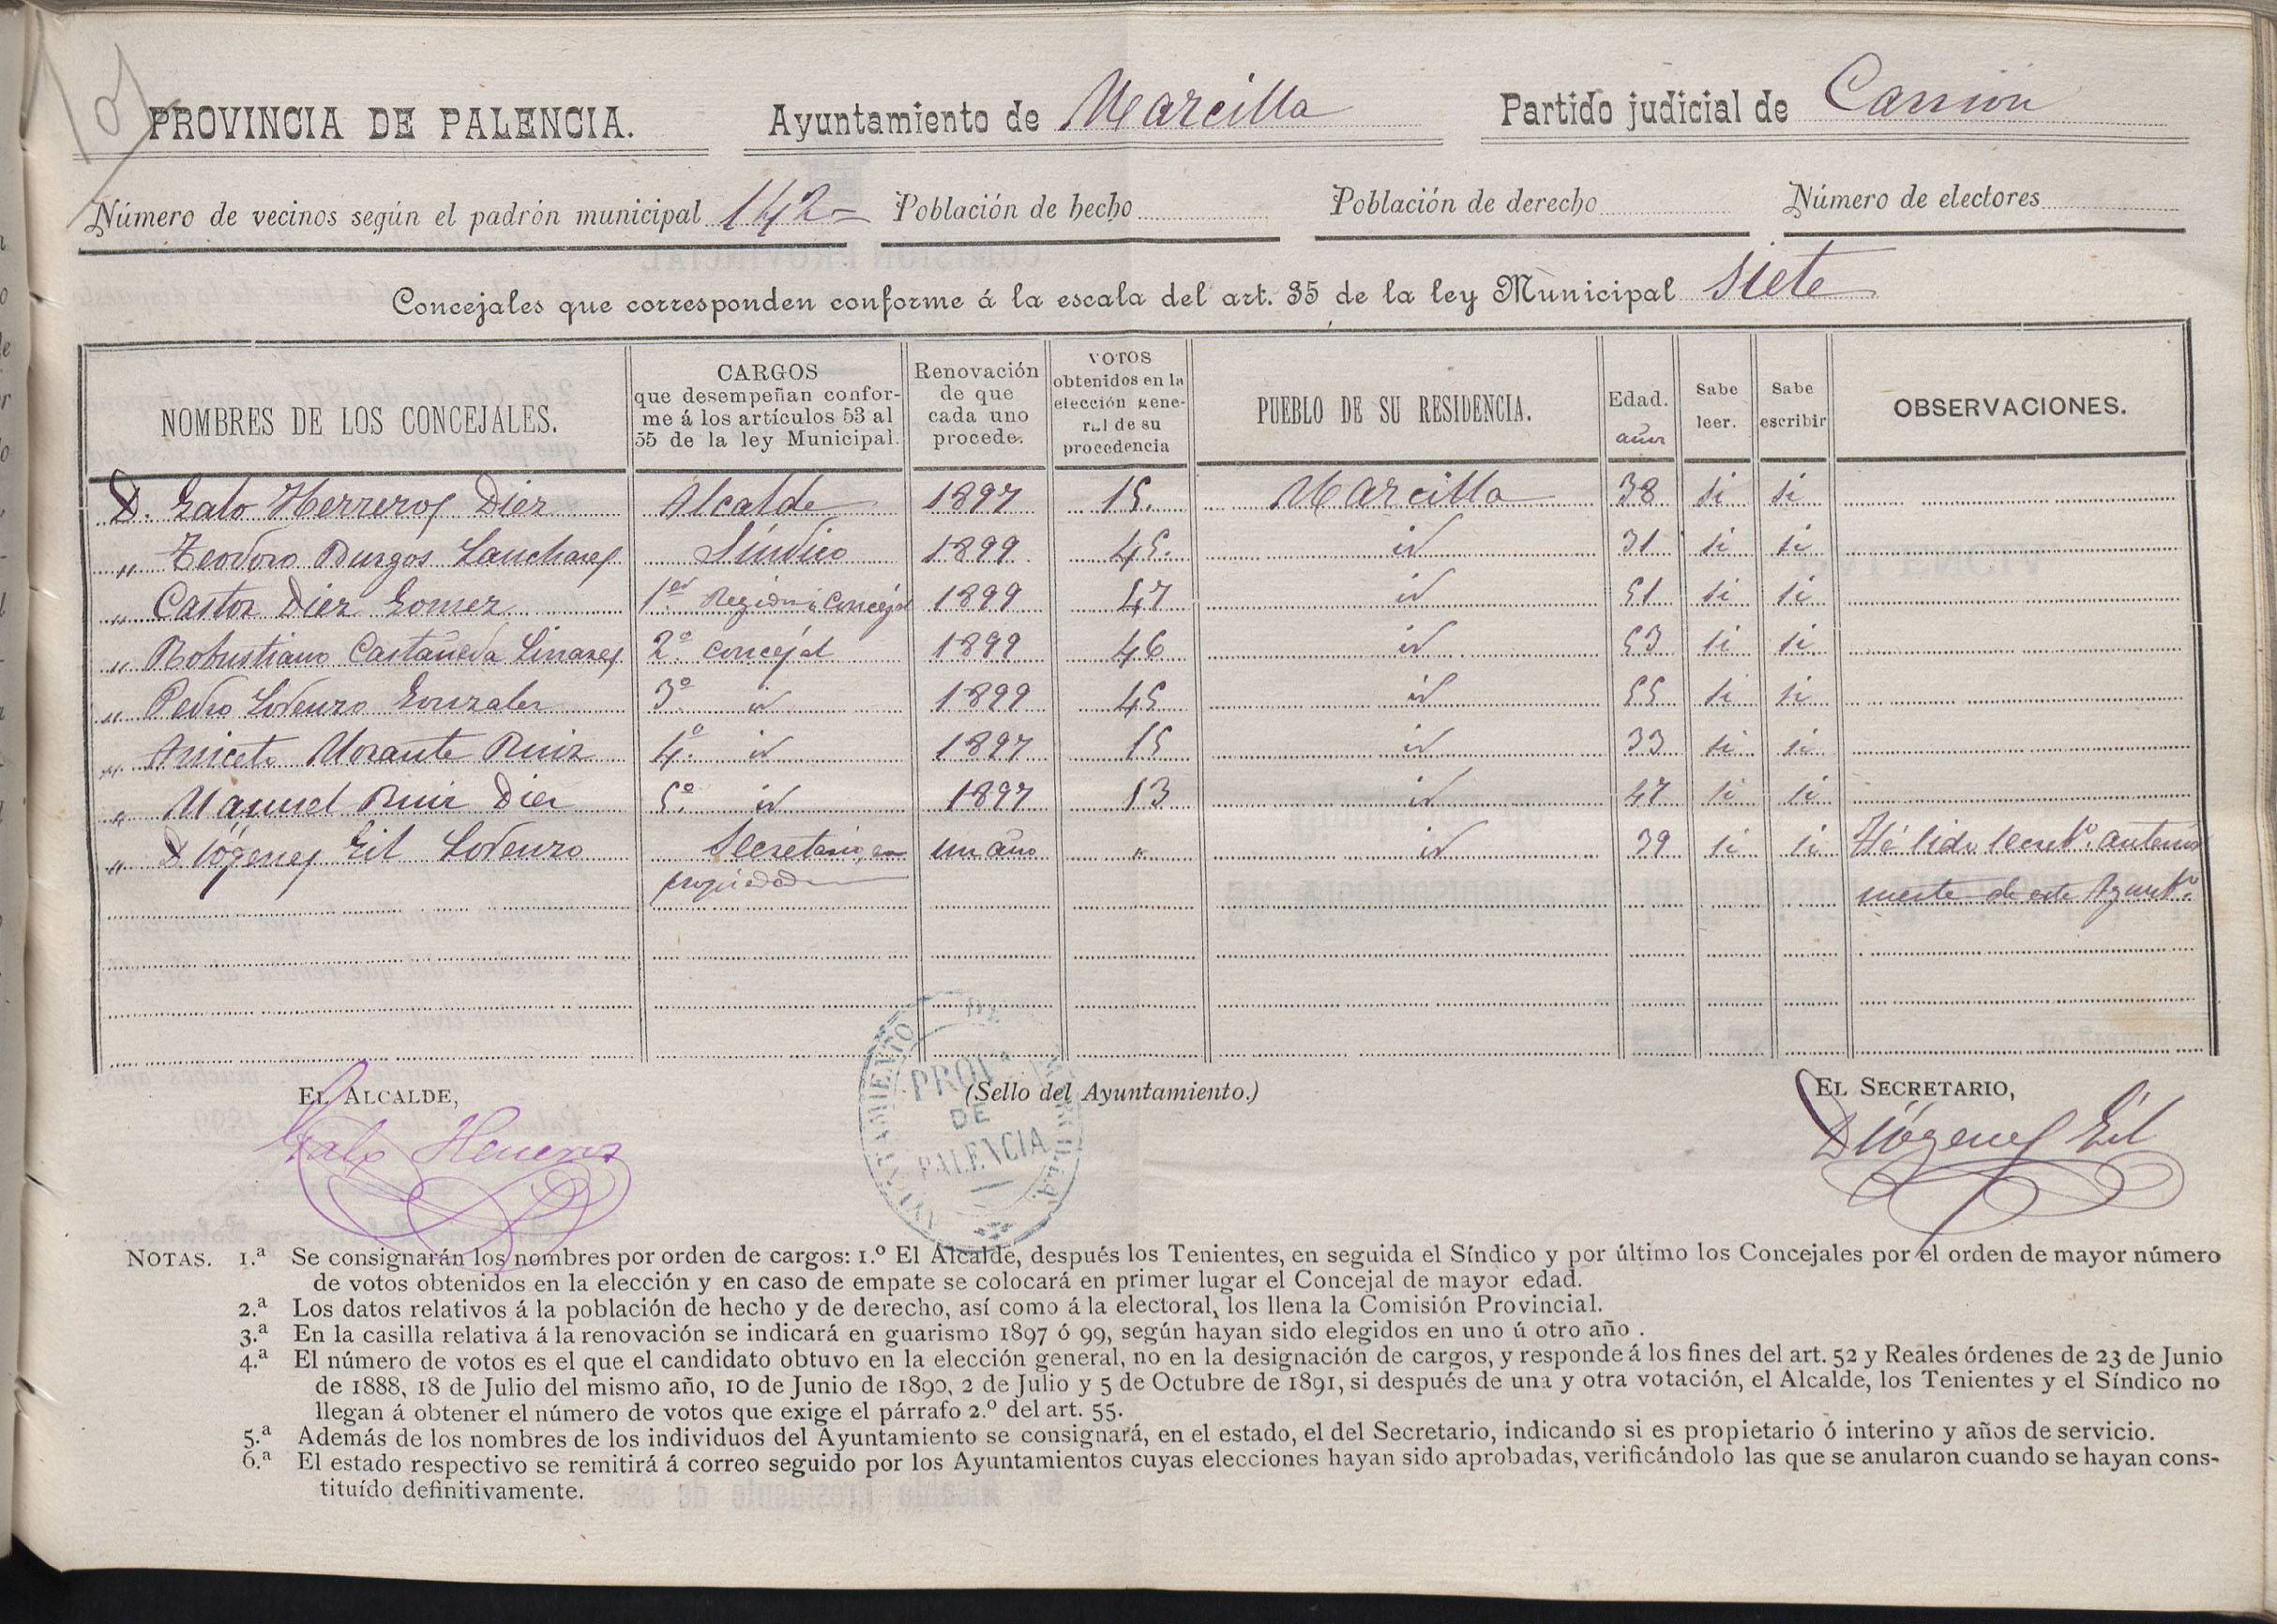 PROVINCIA DE PALENCIA. Ayuntamiento de Marcilla Partido judicial de Carrion
Número de vecinos según el padrón municipal 142= Población de hecho Población de derecho Número de electores
Concejales que corresponden conforme á la escala del art. 35 de la ley Municipal Siete
NOMBRES DE LOS CONCEJALES. CARGOS que desempeñan confor- me á los artículos 53 al 55 de la ley Municipal. Renovación de que cada uno procede. VOTOS obtenidos en la elección gene- ral de su procedencia PUEBLO DE SU RESIDENCIA. Edad. años Sabe leer. Sabe escribir OBSERVACIONES.
D. Galo Herreros Diez Alcalde 1897 15. Marcilla 38 si si
„ Teodoro Burgos Lanchares Síndico 1899 45. id 31 si si
„ Castor Diez Gomez 1er Regidor ó Concejal 1899 47 id 51 si si
„ Robustiano Castañeda Linares 2º concejal 1899 46 id 53 si si
„ Pedro Lorenzo Gonzalez 3º id 1899 45 id 55 si si
„ Aniceto Morante Ruiz 4º id 1897 15 id 33 si si
„ Manuel Ruiz Diez 5º id 1897 13 id 47 si si
„ Diógenes Gil Lorenzo Secretario, en un año „ id 39 si si Hé sido secretº. anterior
propiedad mente de este Ayuntº.
EL ALCALDE, (Sello del Ayuntamiento.) EL SECRETARIO,
Galo Herreros
Diógenes Gil
AYUNTAMIENTO DE MARCILLA
PROVª
DE
PALENCIA
NOTAS. 1.ª Se consignarán los nombres por orden de cargos: 1.º El Alcalde, después los Tenientes, en seguida el Síndico y por último los Concejales por el orden de mayor número
de votos obtenidos en la elección y en caso de empate se colocará en primer lugar el Concejal de mayor edad.
2.ª Los datos relativos á la población de hecho y de derecho, así como á la electoral, los llena la Comisión Provincial.
3.ª En la casilla relativa á la renovación se indicará en guarismo 1897 ó 99, según hayan sido elegidos en uno ú otro año .
4.ª El número de votos es el que el candidato obtuvo en la elección general, no en la designación de cargos, y responde á los fines del art. 52 y Reales órdenes de 23 de Junio
de 1888, 18 de Julio del mismo año, 10 de Junio de 1890, 2 de Julio y 5 de Octubre de 1891, si después de una y otra votación, el Alcalde, los Tenientes y el Síndico no
llegan á obtener el número de votos que exige el párrafo 2.º del art. 55.
5.ª Además de los nombres de los individuos del Ayuntamiento se consignará, en el estado, el del Secretario, indicando si es propietario ó interino y años de servicio.
6.ª El estado respectivo se remitirá á correo seguido por los Ayuntamientos cuyas elecciones hayan sido aprobadas, verificándolo las que se anularon cuando se hayan cons-
tituído definitivamente.